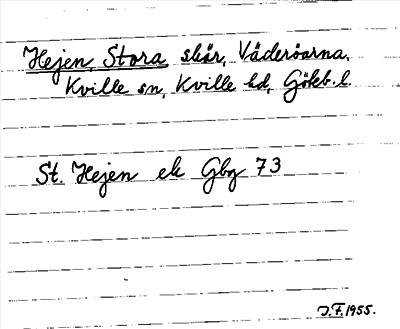 Hejen, Stora skär, Väderöarna,
Kville sn, Kville hd, Göteb. l.
St. Hejen ek Gbg 73
J.F. 1955.